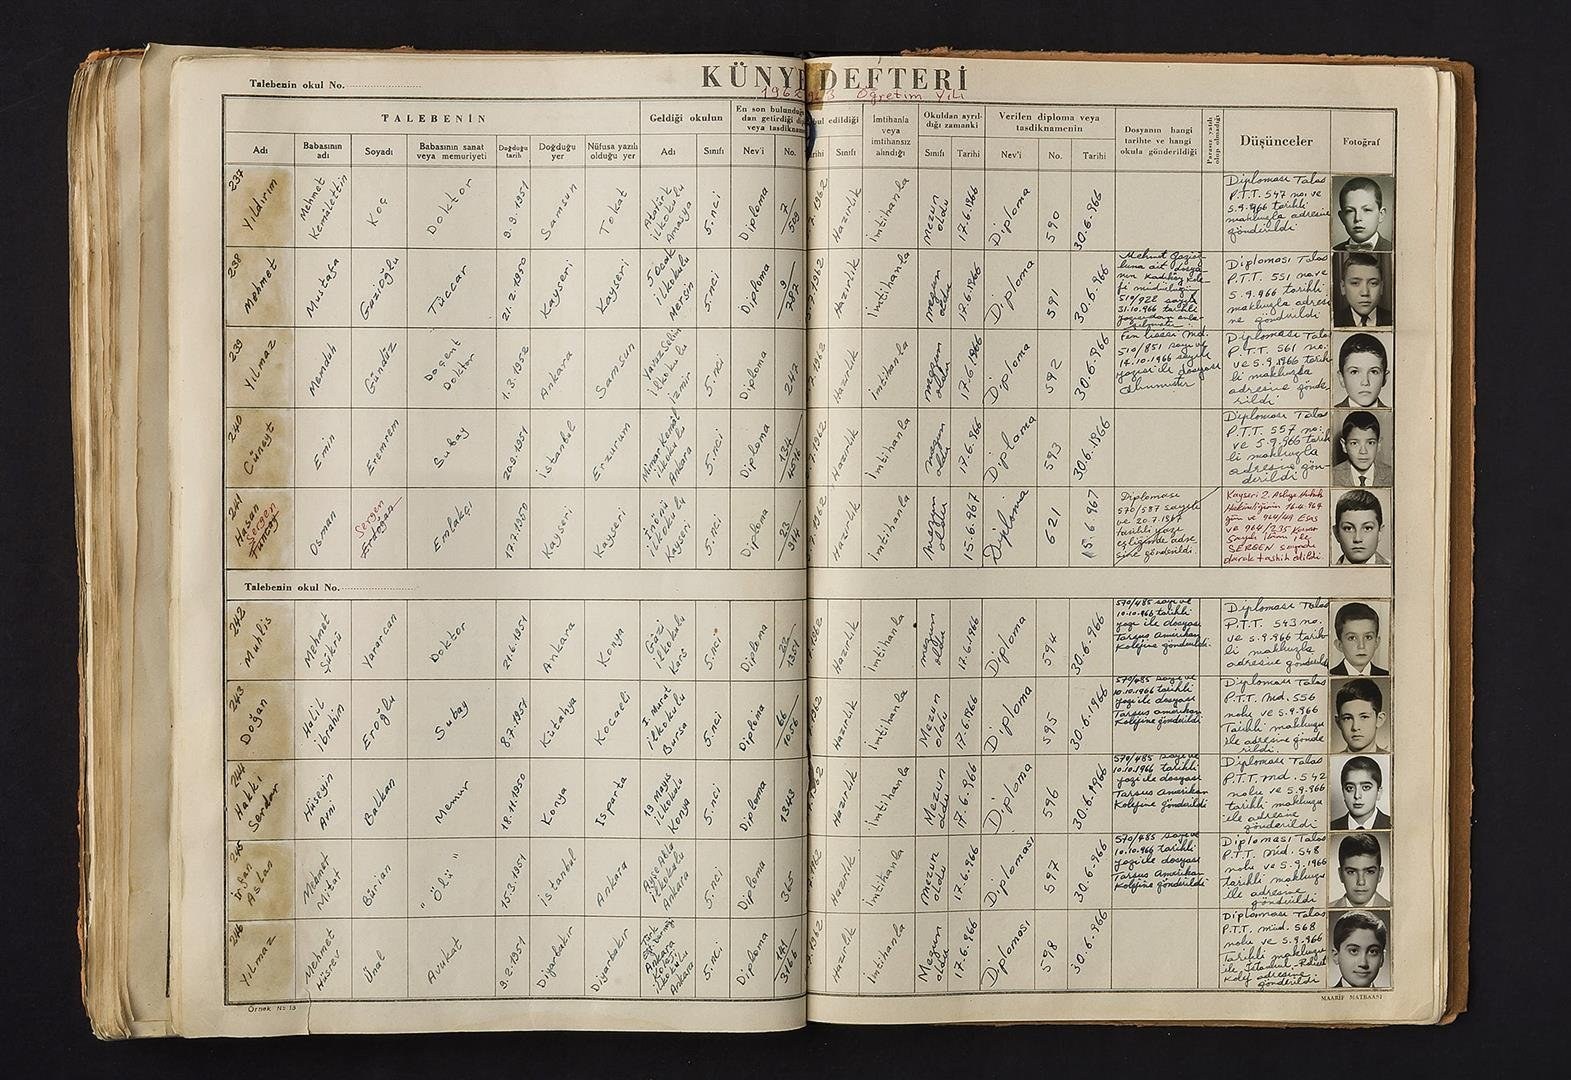 KÜNYE DEFTERİ
Talebenin okul No.
1962-963 Öğretim Yılı
TALEBENİN
Geldiği okulun
En son bulunduğu
dan getirdiği
veya tasdikname
bul edildiği
İmtihanla
veya
imtihansız
alındığı
Okuldan ayrıl-
dığı zamanki
Verilen diploma veya
tasdiknamenin
Dosyanın hangi
tarihte ve hangi
okula gönderildiği
Parasız yatılı
olup olmadığı
Düşünceler
Fotoğraf
Adı
Babasının
adı
Soyadı
Babasının sanat
veya memuriyeti
Doğduğu
tarih
Doğduğu
yer
Nüfusa yazılı
olduğu yer
Adı
Sınıfı
Nev'i
No.
Tarihi
Sınıfı
Sınıfı
Tarihi
Nev'i
No.
Tarihi
237
Yıldırım
Mehmet
Kemalettin
Koç
Doktor
9.9.1951
Samsun
Tokat
Atatürk
ilkokulu
Amasya
5.nci
Diploma
7/509
1962
Hazırlık
İmtihanla
mezun
oldu
17.6.1966
Diploma
590
30.6.966
Diploması Talas
P.T.T. 547 no. ve
5.9.966 tarihli
makbuzla adresine
gönderildi
238
Mehmet
Mustafa
Gazioğlu
Tüccar
21.2.1950
Kayseri
Kayseri
3 Ocak
ilkokulu
Mersin
5.nci
Diploma
9/787
1962
Hazırlık
İmtihanla
mezun
oldu
17.6.1966
Diploma
591
30.6.966
Mehmet Gaziog
luna ait dosya-
nın Kadıköy
510/922 sayılı
31.10.966 tarihli
Diploması Talas
P.T.T. 551 no ve
5.9.966 tarihli
makbuzla adresi
ne gönderildi
239
Yılmaz
Memduh
Gündüz
Doçent
Doktor
1.3.1952
Ankara
Samsun
Yavuz Selim
ilkokulu
İzmir
5.nci
Diploma
247
1962
Hazırlık
İmtihanla
mezun
oldu
17.6.1966
Diploma
592
30.6.966
Fen lisesi Md.
510/851 sayı ve
14.10.1966
yazısı ile dosyası
Diploması Talas
P.T.T. 561 no.
ve 5.9.1966 tarih-
li makbuzla
adresine gönde
rildi
240
Cüneyt
Emin
Eremrem
Subay
20.9.1951
İstanbul
Erzurum
Mimar Kemal
ilkokulu
Ankara
5.nci
Diploma
1962
Hazırlık
İmtihanla
mezun
oldu
17.6.966
Diploma
593
30.6.1966
Diploması Talas
P.T.T. 557 no:
ve 5.9.966 tarih
li makbuzla
adresine gön-
derildi
241
Hasan
Sergen
Tuncay
Osman
Sergen
Erdoğan
Emlakçı
17.7.1950
Kayseri
Kayseri
İnönü
ilkokulu
Kayseri
5.nci
Diploma
23/914
1962
Hazırlık
İmtihanla
mezun
oldu
15.6.967
Diploma
621
15.6.967
Diploması
570/587 sayılı
ve 20.7.1967
tarihli yazı
eşliğinde adre
sine gönderildi.
Kayseri 2. Asliye Hukuk
Hakimliğinin 16.4.964
gün ve 964/49 Esas
ve 964/235 Karar
sayılı ilamı ile
SERGEN soyadı
olarak tashih edildi
Talebenin okul No.
242
Muhlis
Mehmet
Şükrü
Yararcan
Doktor
21.6.1951
Ankara
Konya
Gazi
ilkokulu
Kars
5.nci
Diploma
1962
Hazırlık
İmtihanla
mezun
oldu
17.6.1966
Diploma
594
30.6.966
570/485 sayı ve
10.10.966 tarihli
yazı ile dosyası
Tarsus Amerikan
Kolejine gönderildi.
Diploması Talas
P.T.T. 543 no.
ve 5.9.966 tarih-
li makbuzla
adresine gönderildi
243
Doğan
Halil
İbrahim
Eroğlu
Subay
8.7.1951
Kütahya
Kocaeli
I. Murat
ilkokulu
Bursa
5.nci
Diploma
66/1056
1962
Hazırlık
İmtihanla
Mezun
oldu
17.6.1966
Diploma
595
30.6.1966
570/485 sayı ve
10.10.1966 tarihli
yazı ile dosyası
Tarsus amerikan
Kolejine gönderildi
Diploması Talas
P.T.T. Md. 556
nolu ve 5.9.966
Tarihli makbuzu
ile adresine gönde
rildi.
244
Hakkı
Serdar
Hüseyin
Avni
Balkan
Memur
18.11.1950
Konya
Isparta
19 Mayıs
ilkokulu
Konya
5.nci
Diploma
1343
1962
Hazırlık
İmtihanla
Mezun
oldu
17.6.966
Diploma
596
30.6.1966
570/485 sayı ve
10.10.1966 tarihli
yazı ile dosyası
Tarsus Amerikan
Kolejine gönderildi
Diploması Talas
P.T.T. md. 542
nolu ve 5.9.966
tarihli makbuzu
ile adresine
gönderildi
245
İrfan
Aslan
Mehmet
Mitat
Bürian
"Ölü"
15.3.1951
İstanbul
Ankara
ilkokulu
Ankara
5.nci
Diploma
365
1962
Hazırlık
İmtihanla
mezun
oldu
17.6.966
Diploması
597
30.6.966
570/485 sayı ve
10.10.966 tarihli
yazı ile dosyası
Tarsus Amerikan
Kolejine gönderildi
Diploması Talas
P.T.T. Md. 548
nolu ve 5.9.1966
tarihli makbuzu
ile adresine
gönderildi
246
Yılmaz
Mehmet
Hüsrev
Ünal
Avukat
9.2.1951
Diyarbakır
Diyarbakır
Ankara
Koleji
Ankara
5.nci
Diploma
1962
Hazırlık
İmtihanla
Mezun
oldu
17.6.966
Diploması
598
30.6.966
Diploması Talas
P.T.T. müd. 568
nolu ve 5.9.966
Tarihli makbuzu
ile İstanbul Robert
Kolej adresine
gönderildi
Örnek No 13
MAARİF MATBAASI